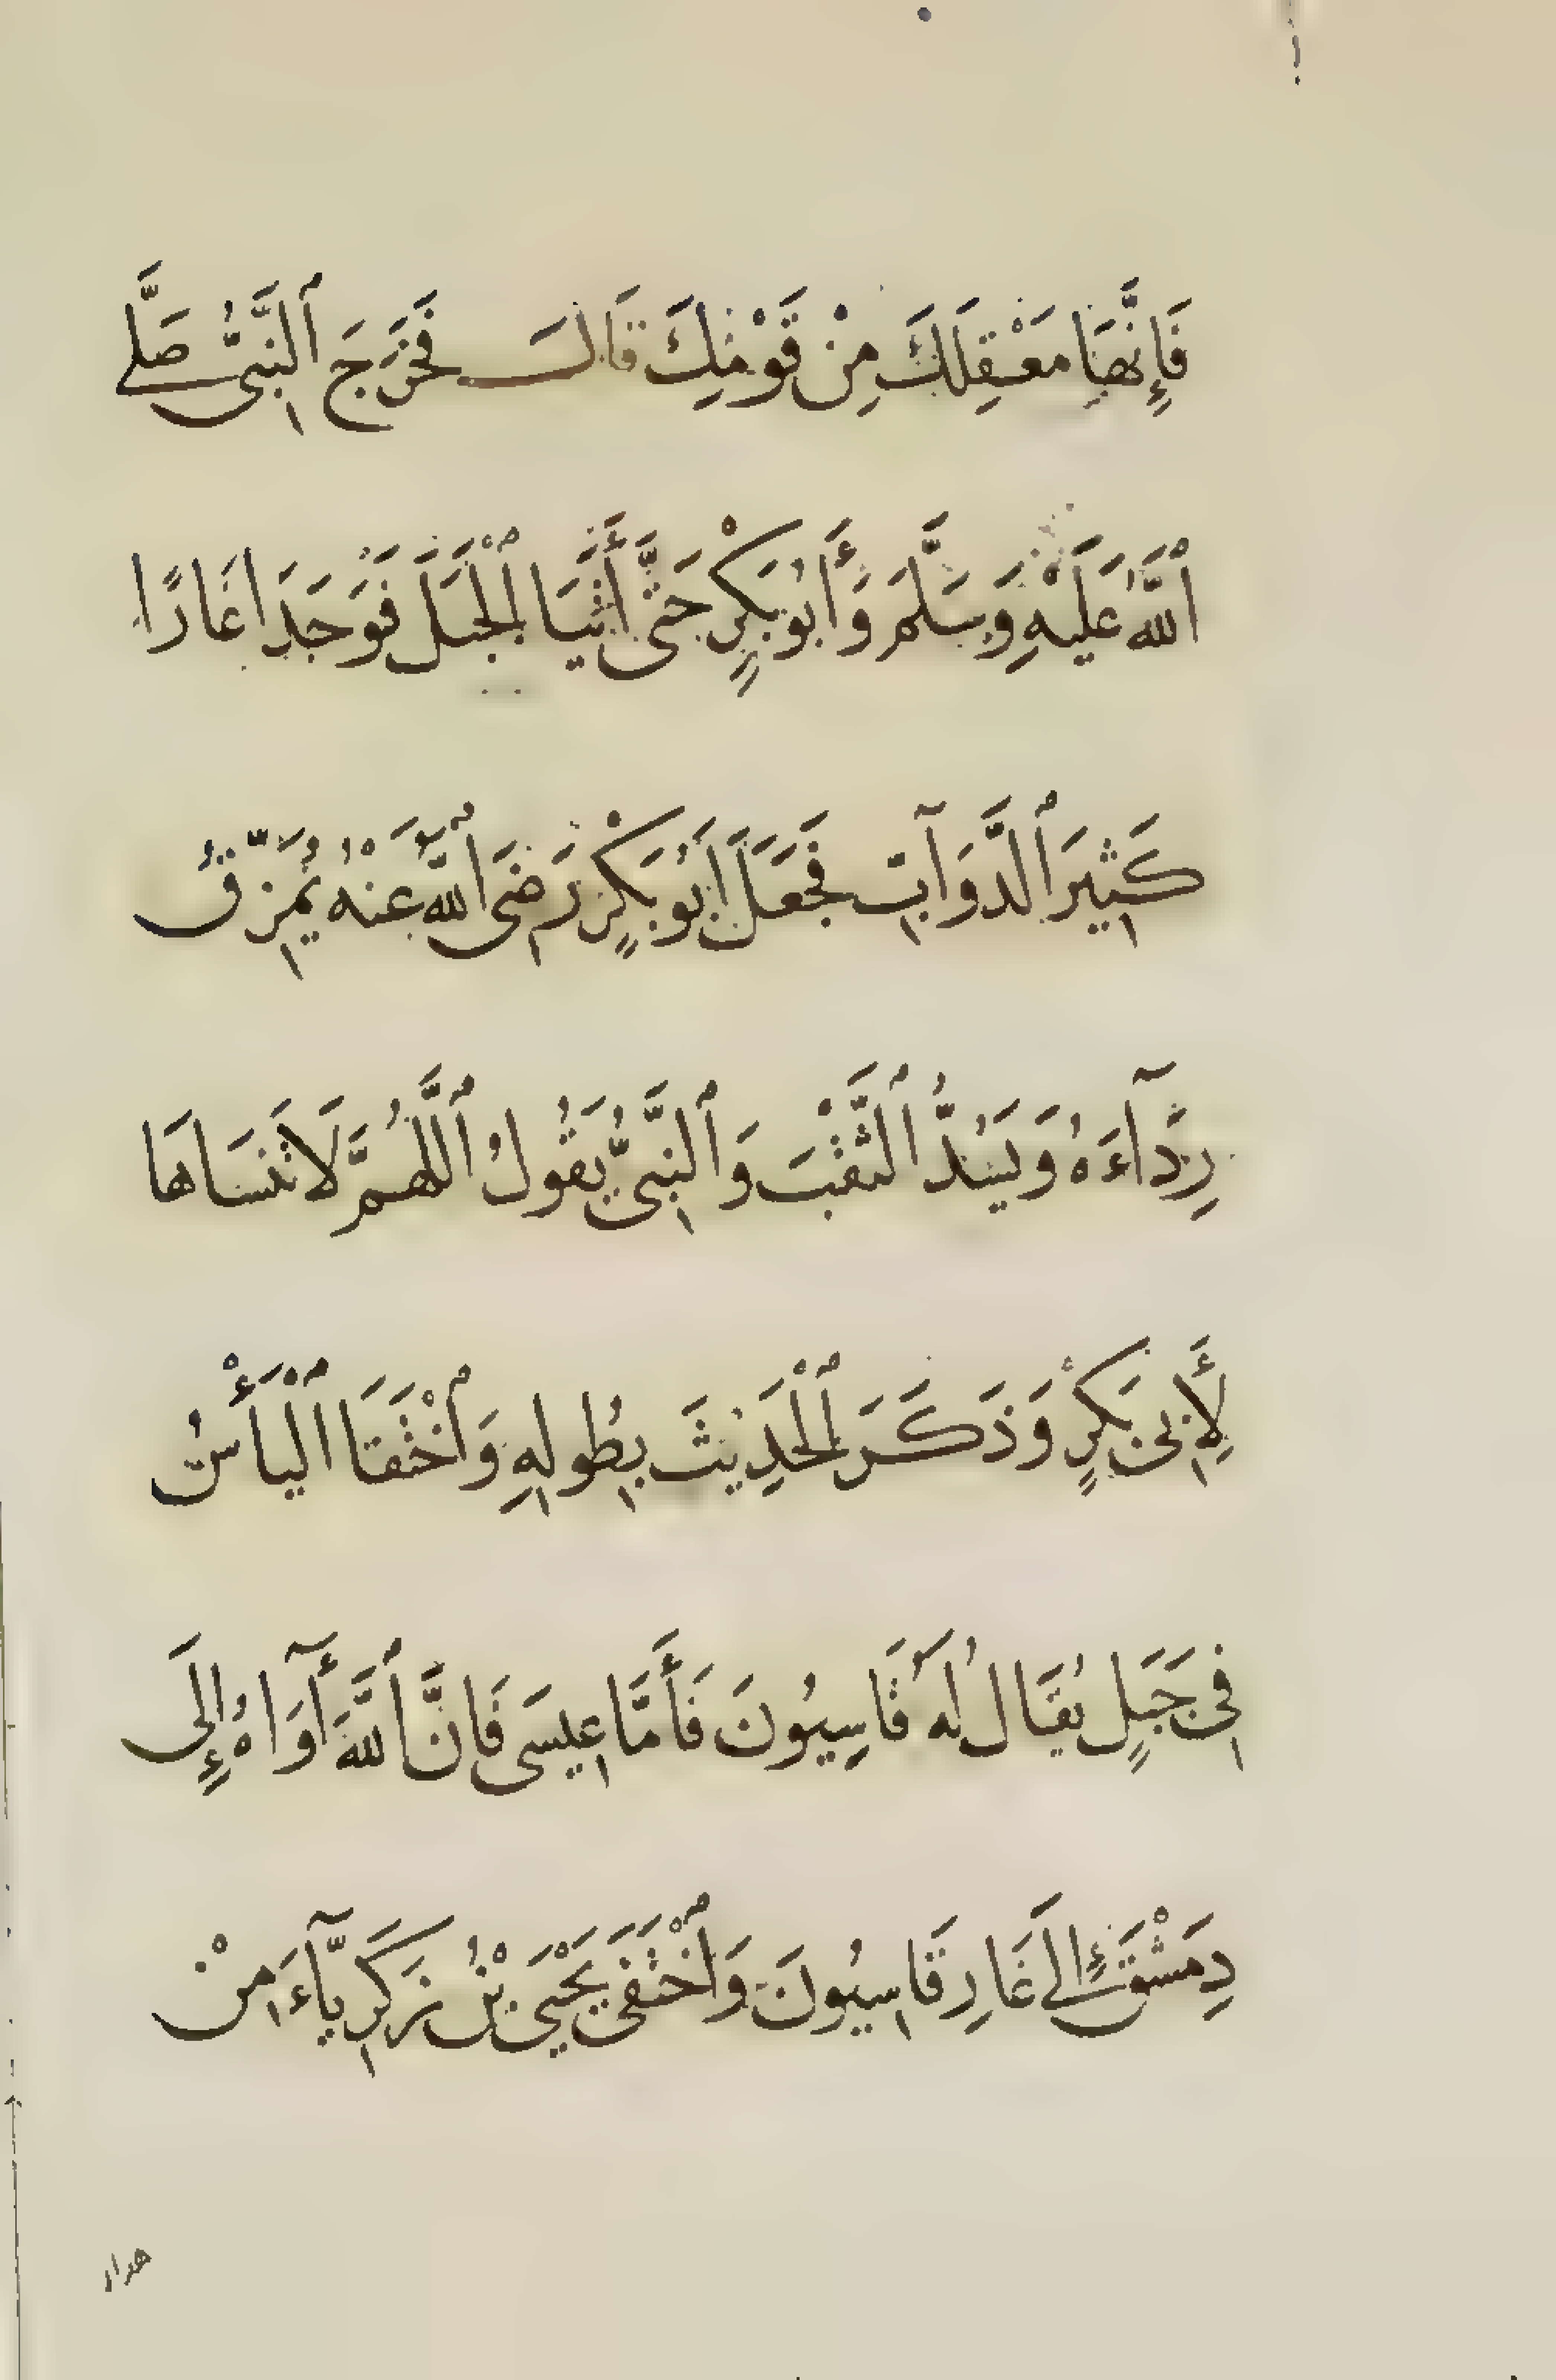 فَإِنَّهَا مَعْقِلَكَ مِنْ قَوْمِكَ قَالَ فَخَرَجَ ٱلنَّبِيُّ صَلَّى
ٱللَّهُ عَلَيْهِ وَسَلَّمَ وَأَبُو بَكْرٍ حَتَّى أَتَيَا ٱلْجَبَلَ فَوَجَدَا غَارًا
كَثِيرَ ٱلدَّوَآبِّ فَجَعَلَ أَبُو بَكْرٍ رَضِيَ ٱللَّهُ عَنْهُ يُمَزِّقُ
رِدَآءَهُ وَيَسُدُّ ٱلثَّقْبَ وَٱلنَّبِيُّ يَقُولُ ٱللَّهُمَّ لَا تَنْسَاهَا
لِأَبِي بَكْرٍ وَذَكَرَ ٱلْحَدِيثَ بِطُولِهِ وَٱخْتَفَا ٱلْيَأْسُ
فِي جَبَلٍ يُقَالُ لَهُ قَاسِيُونَ فَأَمَّا عِيسَى فَإِنَّ ٱللَّهَ أَوَآاهُ إِلَى
دِمَشْقَ إِلَى غَارِ قَاسِيُونَ وَٱخْتَفَى يَحْيَى بْنُ زَكَرِيَّآءَ مِنْ
هدار